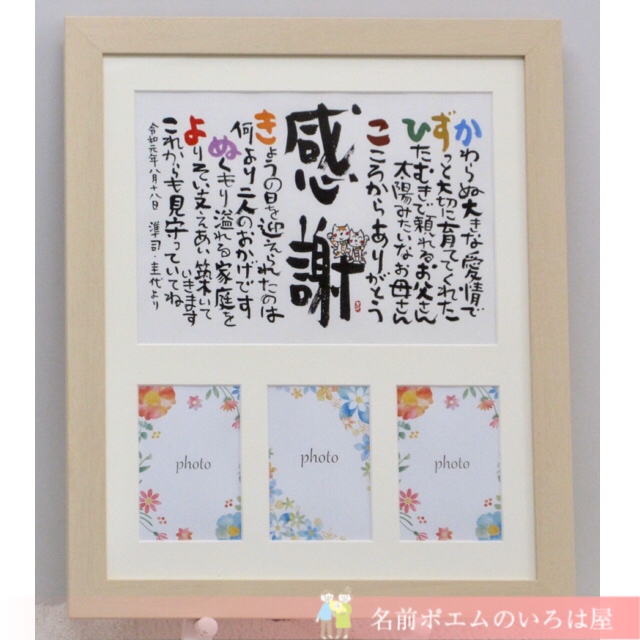 かわらぬ大きな愛情で
ずっと大切に育ててくれた
ひたむきで頼れるお父さん
太陽みたいなお母さん
こころからありがとう
感謝
きょうの日を迎えられたのは
何より二人のおかげです
ぬくもり溢れる家庭を
よりそい支えあい築いて
いきます
これからも見守っていてね
令和元年八月十八日 準司・圭代より
photo
photo
photo
名前ポエムのいろは屋